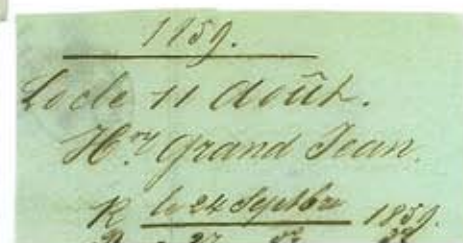 1859.
Locle 11 Août.
H.ry Grand Jean.
R le 24 Septbre 1859.